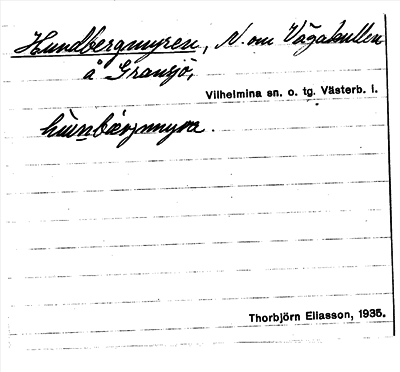 Hundbergmyren, N. om Vågakullen
å Gransjö,
Vilhelmina sn. o. tg. Västerb. l.
hünbærjmyra.
Thorbjörn Eliasson, 1935.